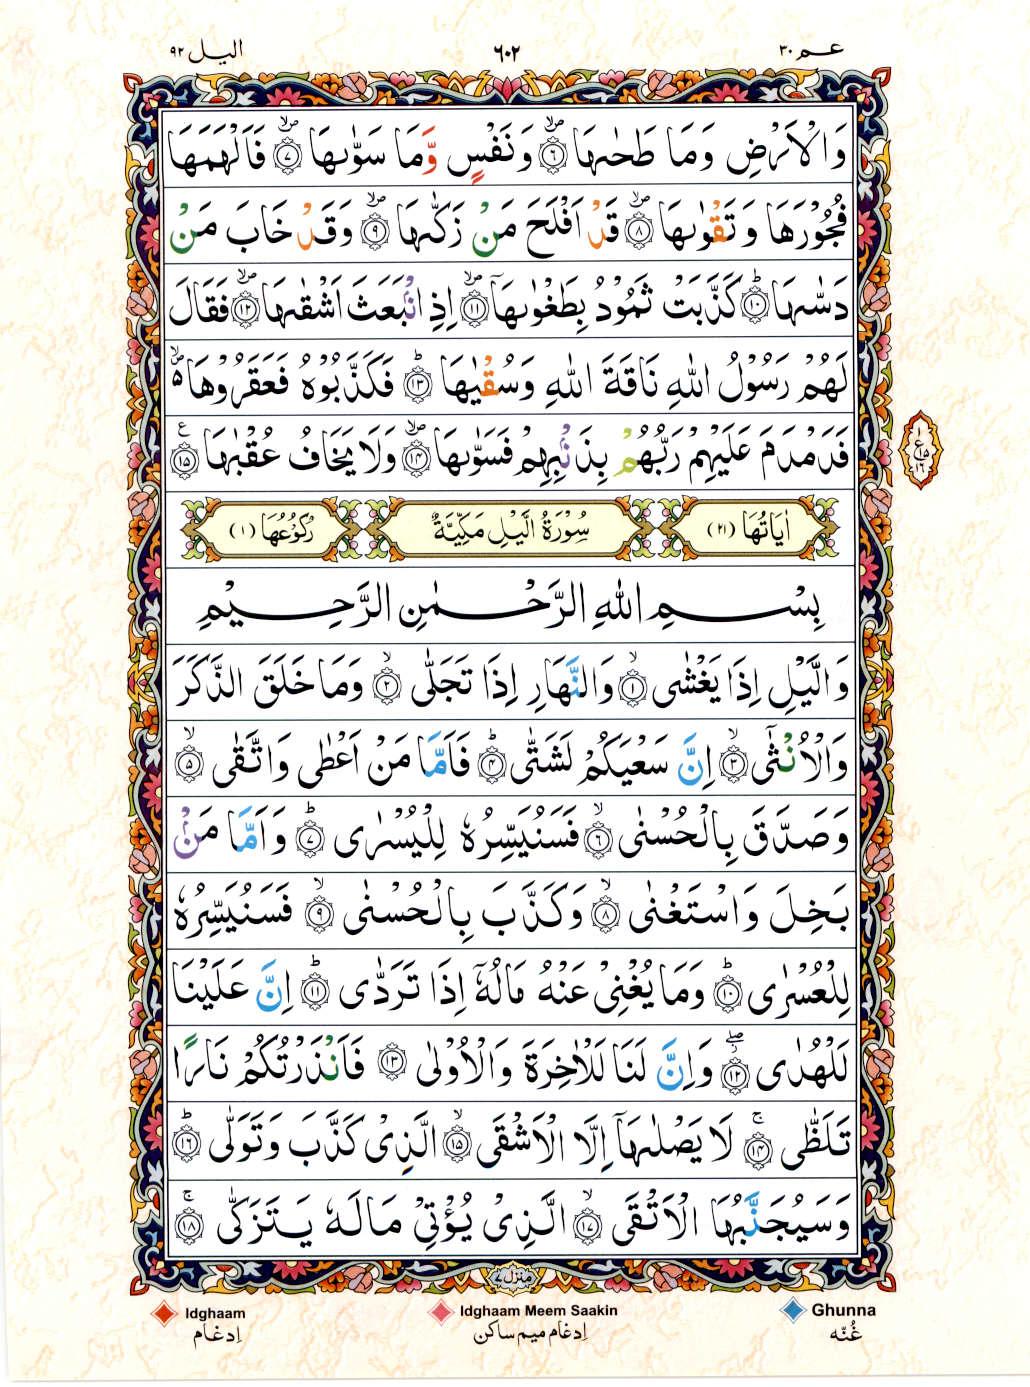 عـم ٣٠
٦٠٢
اليل ٩٢
وَالْاَرْضِ وَمَا طَحٰىهَا ۙ۝۶ وَنَفْسٍ وَّمَا سَوّٰىهَا ۙ۝۷ فَاَلْهَمَهَا
فُجُوْرَهَا وَتَقْوٰىهَا ۙ۝۸ قَدْ اَفْلَحَ مَنْ زَكّٰىهَا ۙ۝۹ وَقَدْ خَابَ مَنْ
دَسّٰىهَا ؕ۝۱۰ كَذَّبَتْ ثَمُوْدُ بِطَغْوٰىهَاۤ ۙ۝۱۱ اِذِ انْۢبَعَثَ اَشْقٰىهَا ۙ۝۱۲ فَقَالَ
لَهُمْ رَسُوْلُ اللّٰهِ نَاقَةَ اللّٰهِ وَسُقْيٰهَا ؕ۝۱۳ فَكَذَّبُوْهُ فَعَقَرُوْهَا ۙ۵
فَدَمْدَمَ عَلَيْهِمْ رَبُّهُمْ بِذَنْۢبِهِمْ فَسَوّٰىهَا ۙ۝۱۴ وَلَا يَخَافُ عُقْبٰهَا ۝۱۵ع
۱
ع
۱۵
۱۶
اٰيَاتُهَا (۲۱) سُوْرَةُ الَّيْلِ مَكِّيَّةٌ رُكُوْعُهَا (۱)
بِسْمِ اللّٰهِ الرَّحْمٰنِ الرَّحِيْمِ
وَالَّيْلِ اِذَا يَغْشٰى ۙ۝۱ وَالنَّهَارِ اِذَا تَجَلّٰى ۙ۝۲ وَمَا خَلَقَ الذَّكَرَ
وَالْاُنْثٰٓى ۙ۝۳ اِنَّ سَعْيَكُمْ لَشَتّٰى ؕ۝۴ فَاَمَّا مَنْ اَعْطٰى وَاتَّقٰى ۙ۝۵
وَصَدَّقَ بِالْحُسْنٰى ۙ۝۶ فَسَنُيَسِّرُهٗ لِلْيُسْرٰى ؕ۝۷ وَاَمَّا مَنْۢ
بَخِلَ وَاسْتَغْنٰى ۙ۝۸ وَكَذَّبَ بِالْحُسْنٰى ۙ۝۹ فَسَنُيَسِّرُهٗ
لِلْعُسْرٰى ؕ۝۱۰ وَمَا يُغْنِىْ عَنْهُ مَالُهٗۤ اِذَا تَرَدّٰى ؕ۝۱۱ اِنَّ عَلَيْنَا
لَلْهُدٰى ۖ۝۱۲ وَاِنَّ لَنَا لَلْاٰخِرَةَ وَالْاُوْلٰى ۝۱۳ فَاَنْذَرْتُكُمْ نَارًا
تَلَظّٰى ۚ۝۱۴ لَا يَصْلٰىهَاۤ اِلَّا الْاَشْقَى ۙ۝۱۵ الَّذِىْ كَذَّبَ وَتَوَلّٰى ؕ۝۱۶
وَسَيُجَنَّبُهَا الْاَتْقَى ۙ۝۱۷ الَّذِىْ يُؤْتِىْ مَالَهٗ يَتَزَكّٰى ۚ۝۱۸
منزل ٧
Idghaam
Idghaam Meem Saakin
Ghunna
اِدغام
اِدغام ميم ساكن
غُنّه